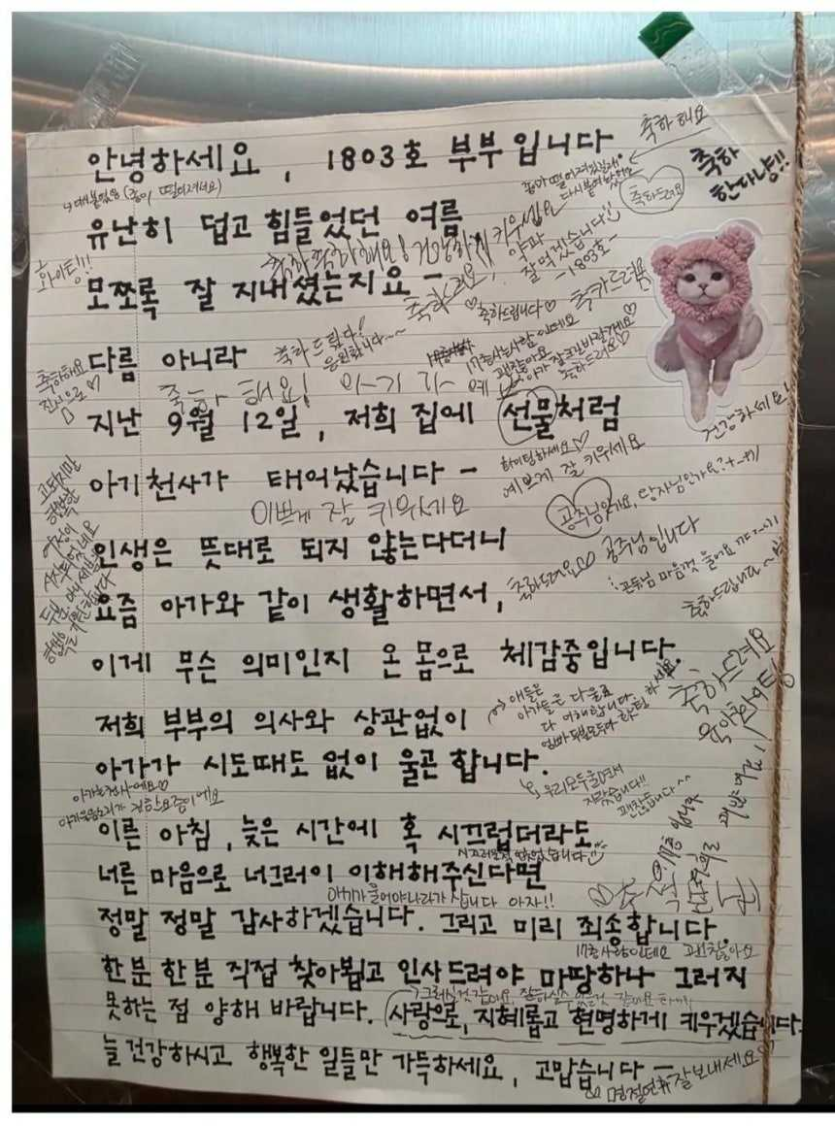 안녕하세요, 1803호 부부입니다
축하해요
축하한다냥!!
축하드려요
유난히 덥고 힘들었던 여름
화이팅!!!
축하 축하해요! 건강하게 키우세요
약과
잘 먹겠습니다!!
-1803호-
모쪼록 잘 지내셨는지요 -
축하드려요,
♡축하드립니다♡
축카드려욤
다름 아니라
축하드립니다!
응원합니다~~
17층 사는 사람인데요
괜찮아요
축하드려요♡
축하해요
진심으로♡
축하해요! 아기가 예
지난 9월 12일, 저희 집에 선물처럼
건강하세요!
화이팅하세요♡
예쁘게 잘 키우세요
아기천사가 태어났습니다 -
이쁘게 잘 키우세요
공주님인가요, 왕자님인가요?
인생은 뜻대로 되지 않는다더니
축하드려요♡♡
공주님입니다
요즘 아가와 같이 생활하면서,
축하드립니다~
이게 무슨 의미인지 온 몸으로 체감중입니다.
축하드려요
육아화이팅!
저희 부부의 의사와 상관없이
애들은
아가들은 다 울죠
다 이해합니다.
아가가 시도때도 없이 울곤 합니다.
아가는 천사에요♡
아가울음소리가 귀한 요즘이에요
우리 모두 울면서
자랐습니다!!
괜찮습니다^^
이른 아침, 늦은 시간에 혹 시끄럽더라도
너른 마음으로 너그러이 이해해주신다면
아기가 울어야 나라가 삽니다 아자!!
정말 정말 감사하겠습니다. 그리고 미리 죄송합니다
17층 사람인데요 괜찮아요
한분 한분 직접 찾아뵙고 인사드려야 마땅하나 그러지
못하는 점 양해 바랍니다. 사랑으로, 지혜롭고 현명하게 키우겠습니다.
늘 건강하시고 행복한 일들만 가득하세요, 고맙습니다 -
명절연휴 잘 보내세요♡